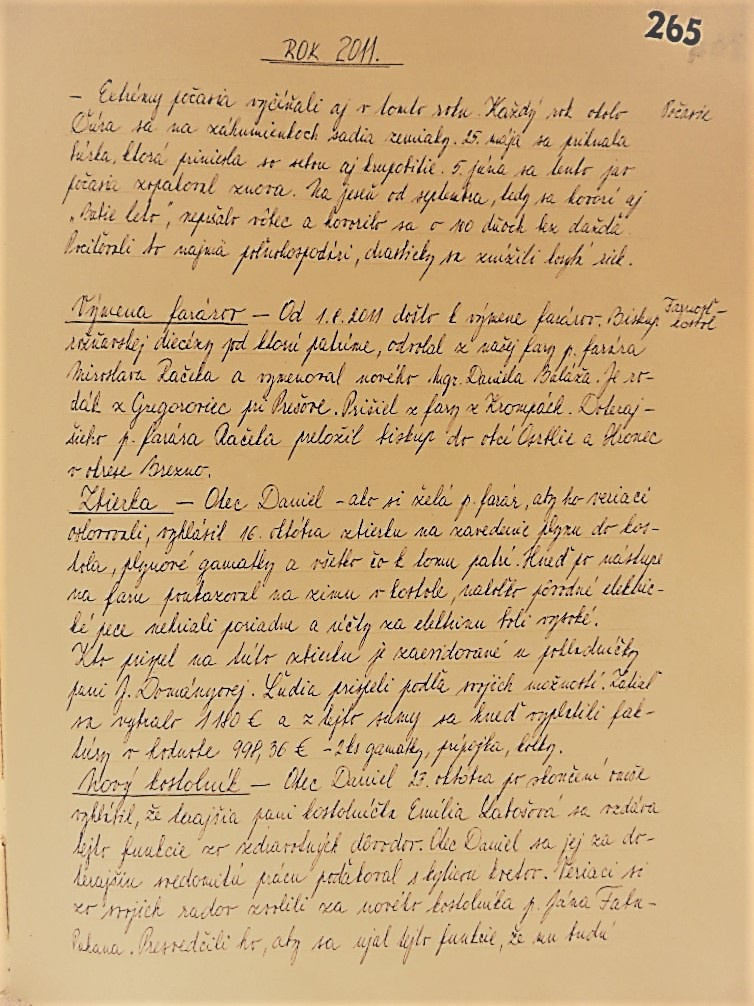 265
ROK 2011.
- Extrémy počasia vyčíňali aj v tomto roku. Každý rok okolo Počasie
Ďura sa na záhumienkoch sadia zemiaky. 25. mája sa prihnala
búrka, ktorá priniesla so sebou aj krupobitie. 5. júna sa tento jav
počasia zopakoval znova. Na jeseň od septembra, kedy sa hovorí aj
„Babie leto", nepršalo vôbec a hovorilo sa o 100 dňoch bez dažďa.
Pociťovali to najmä poľnohospodári, drasticky sa znížili korytá riek.
Výmena farárov - Od 1.8.2011 došlo k výmene farárov. Biskup Farnosť-
rožňavskej diecézy pod ktorú patríme, odvolal z našej fary p. farára kostol
Miroslava Račeka a vymenoval nového Mgr. Daniela Baláža. Je ro-
dák z Gregoroviec pri Prešove. Prišiel z fary z Krompách. Doteraj-
šieho p. farára Račeka preložil biskup do obcí Osrblie a Hronec
v okrese Brezno.
Zbierka - Otec Daniel - ako si želá p. farár, aby ho veriaci
oslovovali, vyhlásil 16. októbra zbierku na zavedenie plynu do kos-
tola, plynové gamatky a všetko čo k tomu patrí. Hneď po nástupe
na faru poukazoval na zimu v kostole, nakoľko pôvodné elektric-
ké pece nehriali poriadne a účty za elektrinu boli vysoké.
Kto prispel na túto zbierku je zaevidované u pokladníčky
pani J. Dományovej. Ľudia prispeli podľa svojich možností. Zatiaľ
sa vybralo 1180 € a z tejto sumy sa hneď vyplatili fak-
túry v hodnote 998,36 € - 2ks gamatky, prípojka, kolky.
Nový kostolník - Otec Daniel 23. októbra po skončení omše
vyhlásil, že terajšia pani kostolníčka Emília Labašová sa vzdáva
tejto funkcie zo zdravotných dôvodov. Otec Daniel sa jej za do-
terajšiu svedomitú prácu poďakoval s kyticou kvetov. Veriaci si
zo svojich radov zvolili za nového kostolníka p. Jána Fabu-
Presvedčili ho, aby sa ujal tejto funkcie, že mu budú